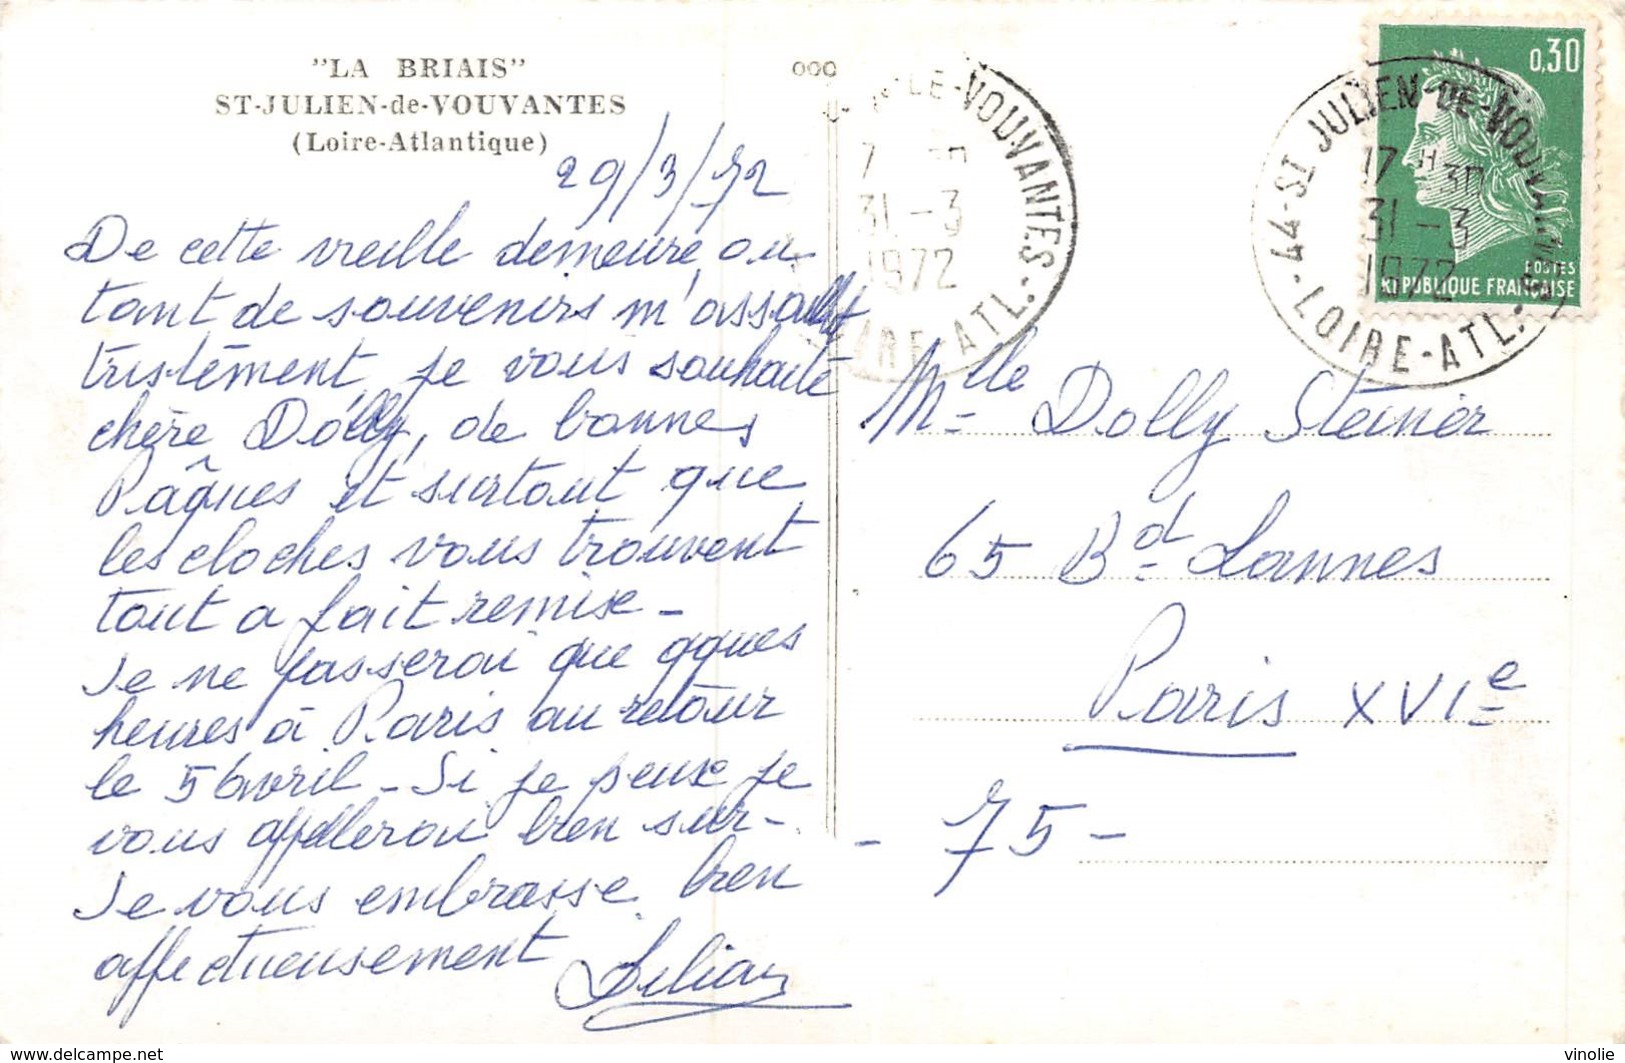 "LA BRIAIS"
ST-JULIEN-de-VOUVANTES
(Loire-Atlantique)
29/3/72
De cette vieille demeure, ou
tant de souvenirs m'assaillent
tristement, je vous souhaite
chère Dolly, de bonnes
Pâques et surtout que
les cloches vous trouvent
tout a fait remise -
Je ne passerai que qques
heures à Paris au retour
le 5 Avril - Si je peux je
vous appellerai bien sur -
Je vous embrasse bien
affectueusement
LE-VOUVANTES
31-3
1972
IRE-ATL.
44-ST JULIEN-DE-VOUVANTES
17H30
31-3
1972
LOIRE-ATL.
0,30
POSTES
REPUBLIQUE FRANÇAISE
Mlle Dolly Steiner
65 Bd Lannes
Paris XVIe
- 75 -
https://www.delcampe.net
vinolie